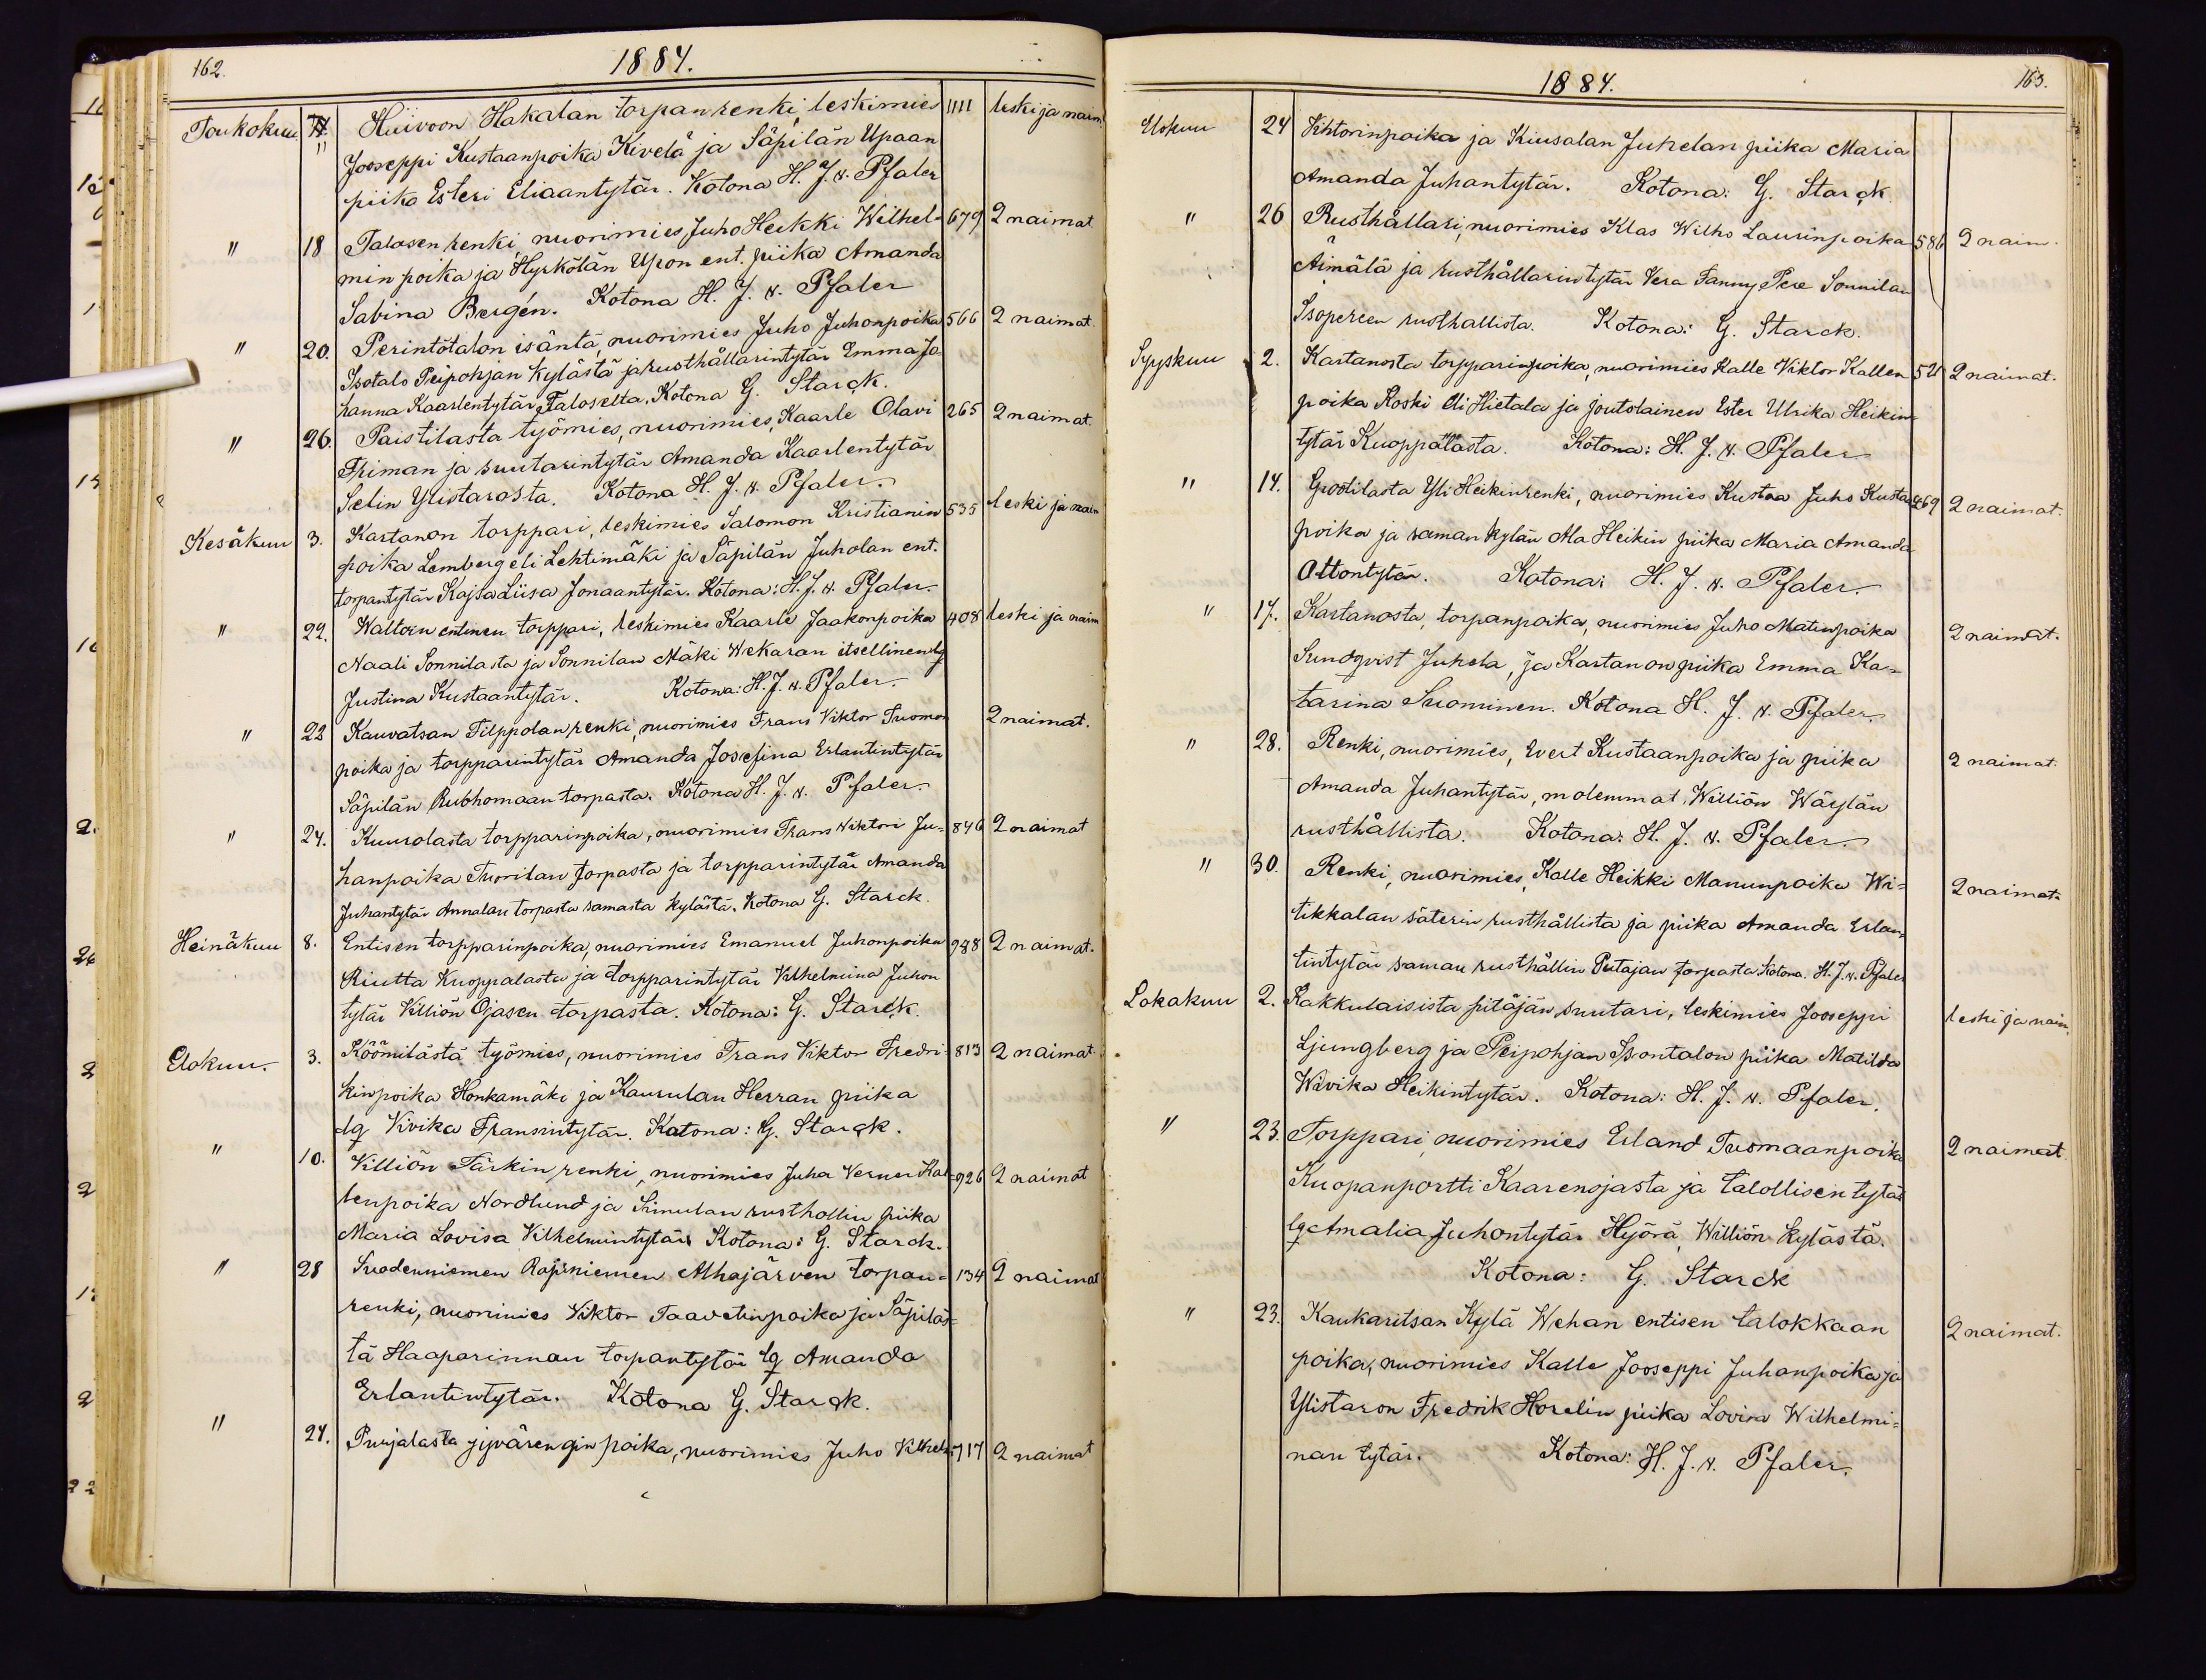 162.
1884.
Toukokuu 11. Huivoon Hakalan torpan renki, leskimies 1111 leski ja naim.
" Jooseppi Kustaanpoika Kivelä ja Säpilän Upaan
piika Esteri Eliaantytär. Kotona H. J. v. Pfaler
" 18 Talosen renki nuorimies Juho Heikki Wilhel- 679 2 naimat
min poika ja Hyrkölän Upon ent. piika Amanda
Sabina Bergén. Kotona H. J. v. Pfaler
" 20. Perintötalon isäntä, nuorimies Juho Juhonpoika 566 2 naimat.
Isotalo Peipohjan kylästä ja rusthållarintytär Emma Jo-
hanna Kaarlentytär Taloselta. Kotona G. Starck.
" 26. Paistilasta työmies, nuorimies, Kaarle Olavi 265 2 naimat.
Friman ja suutarintytär Amanda Kaarlentytär
Selin Ylistarosta. Kotona H. J. v. Pfaler.
Kesäkuu 3. Kartanon torppari, leskimies Salomon Kristianin 535 leski ja naim
poika Lemberg eli Lehtimäki ja Säpilän Juholan ent.
torpantytär Kajsa Liisa Jonaantytär. Kotona: H. J. v. Pfaler.
" 22. Waltoin entinen torppari, leskimies Kaarle Jaakonpoika 408 leski ja naim
Naali Sonnilasta ja Sonnilan Mäki Wekaran itsellinen lq
Justina Kustaantytär. Kotona: H. J. v. Pfaler.
" 22 Kauvatsan Filppolan renki, nuorimies Frans Viktor Tuomon 2 naimat.
poika ja torpparintytär Amanda Josefina Erlantintytär
Säpilän Rubhomaan torpasta. Kotona H. J. v. Pfaler.
" 24. Kuurolasta torpparinpoika, nuorimies Frans Wiktori Ju- 846 2 naimat
hanpoika Tuorilan torpasta ja torpparintytär Amanda
Juhantytär Annalan torpasta samasta kylästä. Kotona G. Starck.
Heinäkuu 8. Entisen torpparinpoika, nuorimies Emanuel Juhonpoika 948 2 naimat.
Riutta Kuoppalasta ja torpparintytär Vilhelmina Juhon
tytär Villiön Ojasen torpasta. Kotona: G. Starck.
Elokuu. 3. Köömilästä työmies, nuorimies Frans Viktor Fredri- 813 2 naimat.
kinpoika Honkamäki ja Kaurulan Herran piika
lq Vivika Fransintytär. Kotona: G. Starck.
" 10. Villiön Tärkin renki, nuorimies Juha Verner Kal- 926 2 naimat
lenpoika Nordlund ja Simulan rusthollin piika
Maria Lovisa Vilhelmintytär Kotona: G. Starck.
" 28 Suodenniemen Rajiniemen Mhajärven torpan- 134 2 naimat
renki, nuorimies Viktor Taavetinpoika ja Säpiläs-
tä Haaparinnan torpantytär lq Amanda
Erlantintytär. Kotona G. Starck.
" 24. Punjalasta jyvärenginpoika, nuorimies Juho Vilhelm 717 2 naimat
1884.
163.
Elokuu 24 Vihtorinpoika ja Kiusalan Juhelan piika Maria
Amanda Juhantytär. Kotona: G. Starck.
" 26 Rusthållari, nuorimies Klas Wilho Laurinpoika 586 2 naim.
Äimälä ja rusthållarintytär Vera Fanny Pere Sonnilan
Isopereen rusthallista. Kotona: G. Starck.
Syyskuu 2. Kartanosta torpparinpoika, nuorimies Kalle Viktor Kallen 521 2 naimat.
poika Koski eli Hietala ja joutolainen Ester Ulrika Heikin
tytär Kuoppalasta. Kotona: H. J. v. Pfaler
" 14. Gootilasta Yli Heikin renki, nuorimies Kustaa Juho Kustaa 469 2 naimat.
poika ja saman kylän Ala Heikin piika Maria Amanda
Ottontytär. Kotona: H. J. v. Pfaler.
" 17. Kartanosta, torpanpoika, nuorimies Juho Matinpoika 2 naimat.
Sundqvist Juhela, ja Kartanon piika Emma Ka-
tarina Suominen. Kotona H. J. v. Pfaler.
" 28. Renki, nuorimies, Evert Kustaanpoika ja piika 2 naimat.
Amanda Juhantytär, molemmat Williön Wäylän
rusthållista. Kotona: H. J. v. Pfaler.
" 30. Renki, nuorimies, Kalle Heikki Manunpoika Wi- 2 naimat.
tikkalan säterin rusthållista ja piika Amanda Erlan-
tintytär saman rusthållin Putajan torpasta. Kotona. H. J. v. Pfaler
Lokakuu 2. Kakkulaisista pitäjän suutari, leskimies Jooseppi leski ja naim.
Ljungberg ja Peipohjan Isontalon piika Matilda
Wivika Heikintytär. Kotona: H. J. v. Pfaler.
" 23. Torppari, nuorimies Erland Tuomaanpoika 2 naimat.
Kuopanportti Kaarenojasta ja talollisen tytär
lq Amalia Juhontytär Hyörä, Williön kylästä.
Kotona: G. Starck
" 23. Kaukaritsan Kylä Wehan entisen talokkaan 2 naimat.
poika, nuorimies Kalle Jooseppi Juhanpoika ja
Ylistaron Fredrik Horelin piika Lovisa Wilhelmi-
nan tytär. Kotona: H. J. v. Pfaler.